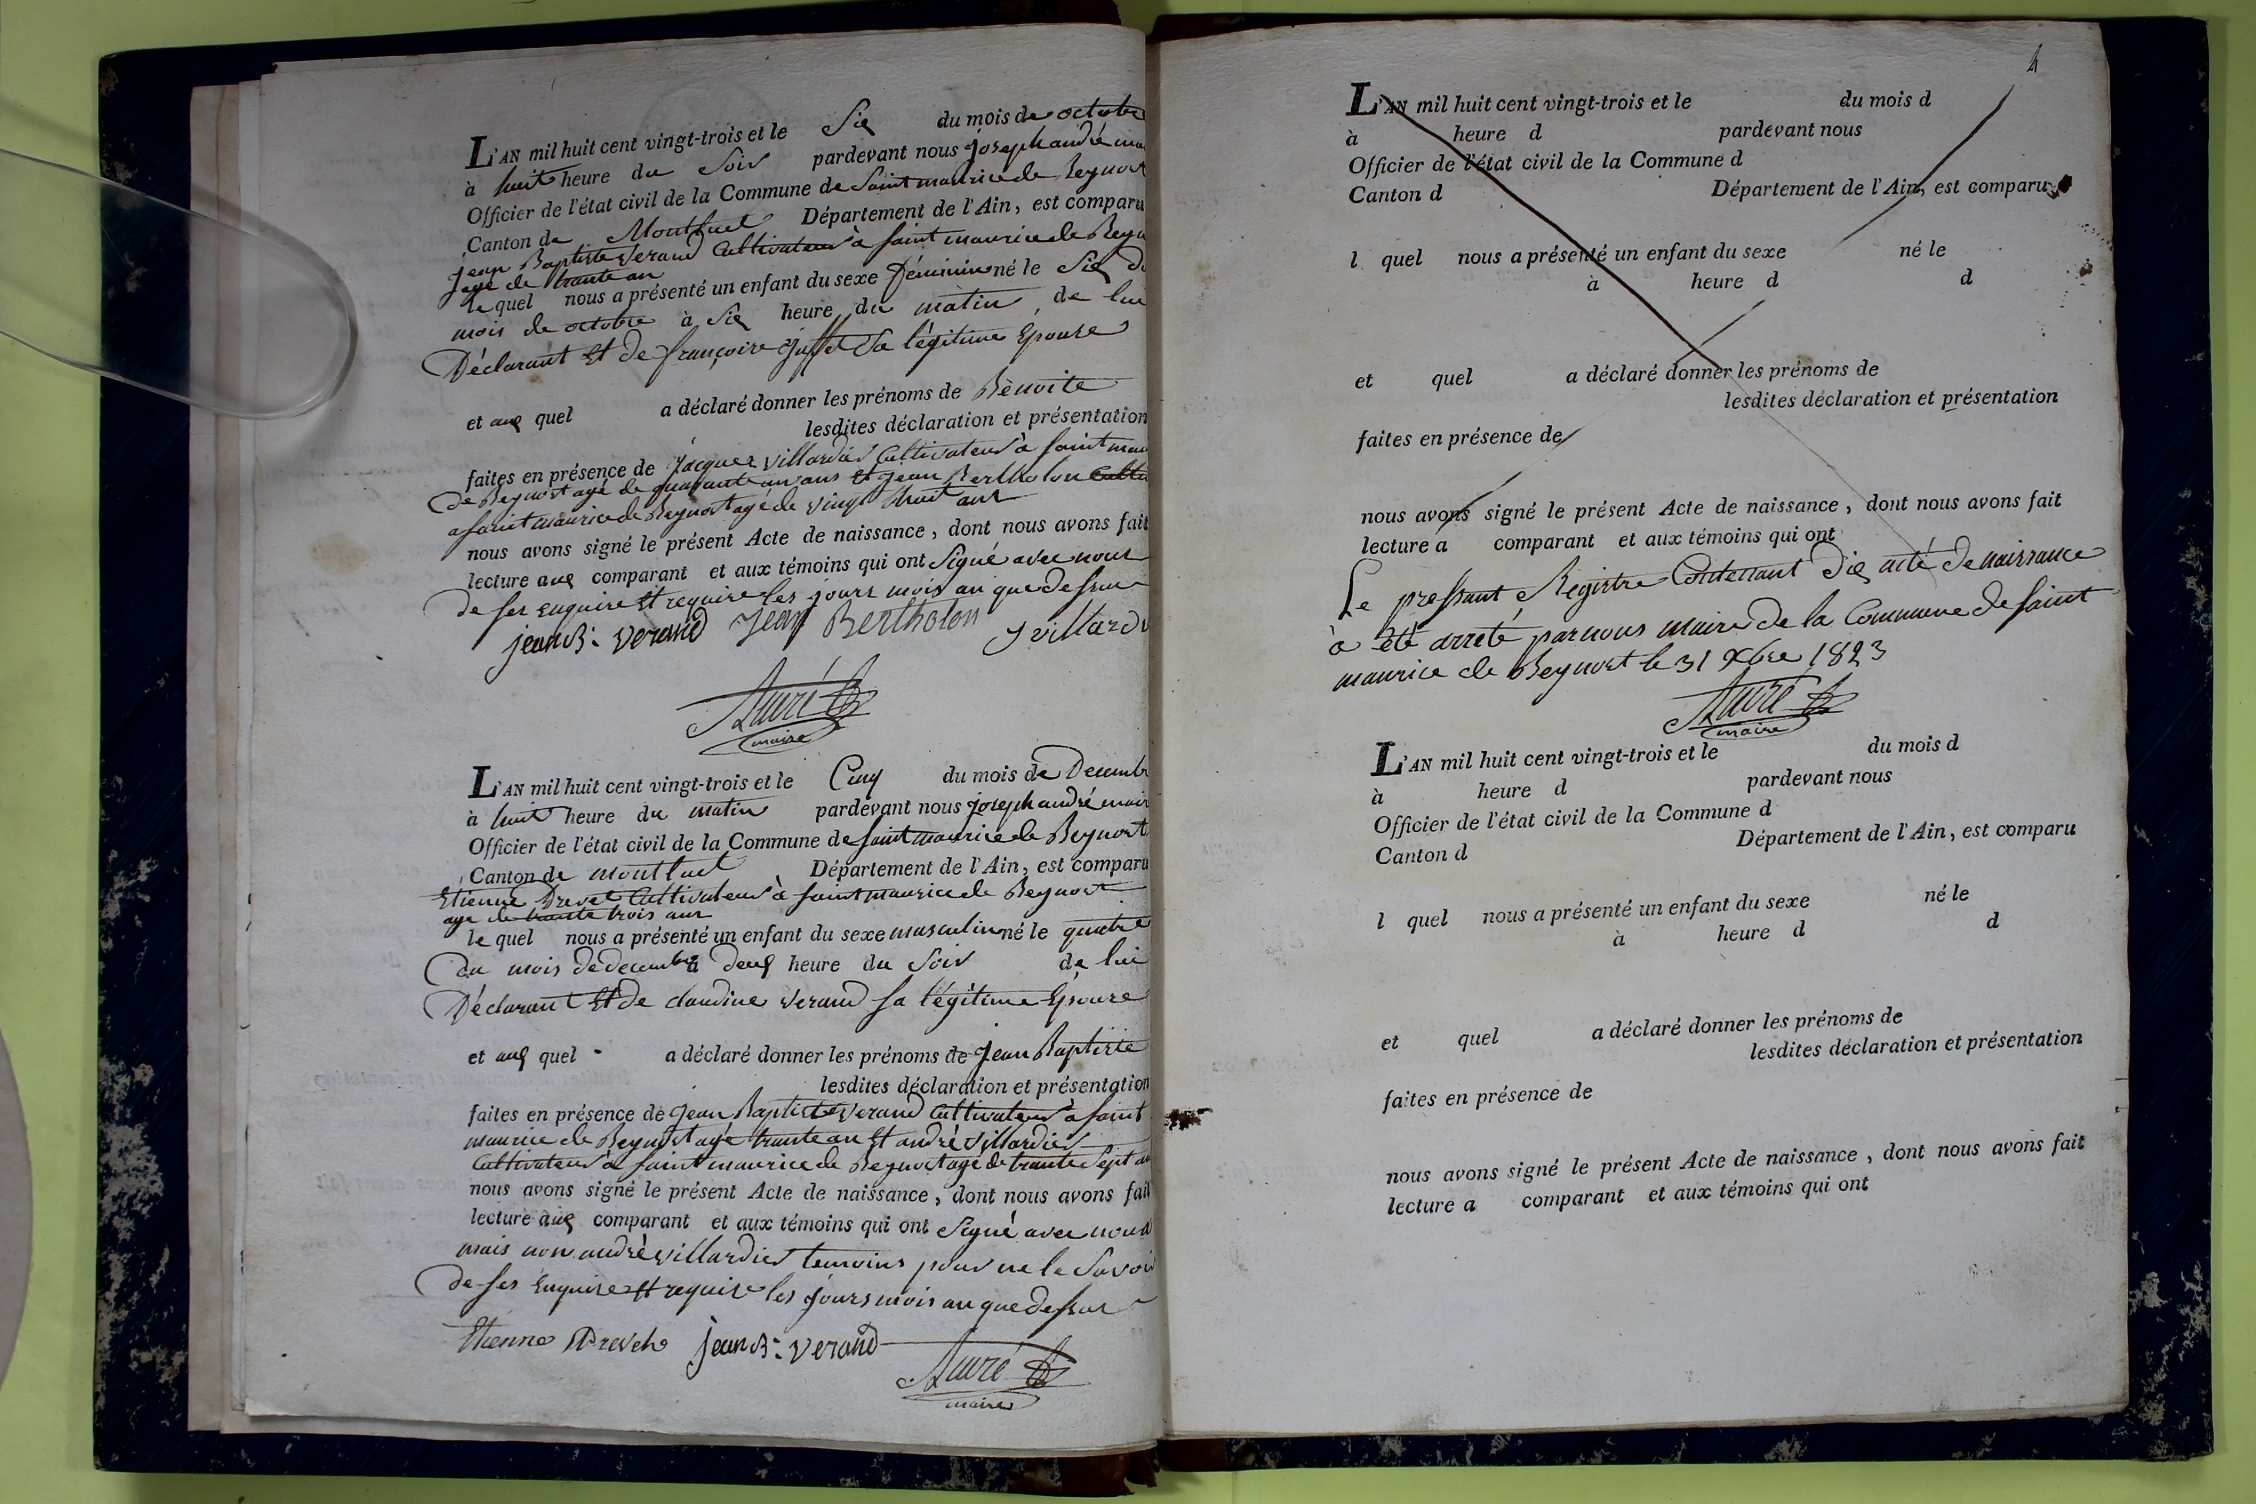 L'AN mil huit cent vingt-trois et le Six du mois de octobre
à huit heure du Soir pardevant nous joseph andré mai
Officier de l'état civil de la Commune de Saint maurice de Beynost
Canton de Montluel Département de l'Ain, est comparu
jean Baptiste Verand Cultivateur à saint maurice de Beyn
agé de trante an
le quel nous a présenté un enfant du sexe féminin né le Six du
mois de octobre à Six heure du matin de lui
Déclarant Et de françoise Sa légitime Épouse
et aux quel a déclaré donner les prénoms de Bènoite
lesdites déclaration et présentation
faites en présence de jacques Villardier Cultivateur à saint mau
de Beynost agé de quarante un ans Et jean Bertholon Culti
a saint maurice de Beynost agé de vingt huit ans
nous avons signé le présent Acte de naissance, dont nous avons fait
lecture aux comparant et aux témoins qui ont Signé avec nous
de ses enquire Et require les jours mois an que dessus
jean B: Verand Jean Bertholon J villardi
André
maire
L'AN mil huit cent vingt-trois et le Cinq du mois de Decembr
à huit heure du matin pardevant nous joseph andré mair
Officier de l'état civil de la Commune de saint maurice de Beynost
Canton de montluel Département de l'Ain, est comparu
Etienne Drevet Cultivateur à saint maurice de Beynost
age de trante trois ans
le quel nous a présenté un enfant du sexe masculin né le quatre
du mois de decembre à deux heure du Soir de lui
Déclarant Et de claudine Verand sa légitime Épouse
et aux quel a déclaré donner les prénoms de Jean Baptiste
lesdites déclaration et présentation
faites en présence de jean Baptiste Verand Cultivateur à saint
maurice de Beynost agé trante an Et andré Villardier
Cultivateur à saint maurice de Beynost agé de trante Sept an
nous avons signé le présent Acte de naissance, dont nous avons fait
lecture aux comparant et aux témoins qui ont Signé avec nous
mais non andrè villardier temoins pour ne le Savoir
de ses Enquire Et require les jours mois an que dessus
Etienne Drevet jean B: Verand
André
maire
4
L'AN mil huit cent vingt-trois et le du mois d
à heure d pardevant nous
Officier de l'état civil de la Commune d
Canton d Département de l'Ain, est comparu
l quel nous a présenté un enfant du sexe né le
à heure d d
et quel a déclaré donner les prénoms de
lesdites déclaration et présentation
faites en présence de
nous avons signé le présent Acte de naissance, dont nous avons fait
lecture a comparant et aux témoins qui ont
Le pressant Régistre Contenant dix acte de naissance
à été arreté par nous maire de la Commune de saint
maurice de Beynost le 31 Xbre 1823
André
maire
L'AN mil huit cent vingt-trois et le du mois d
à heure d pardevant nous
Officier de l'état civil de la Commune d
Canton d Département de l'Ain, est comparu
l quel nous a présenté un enfant du sexe né le
à heure d d
et quel a déclaré donner les prénoms de
lesdites déclaration et présentation
faites en présence de
nous avons signé le présent Acte de naissance, dont nous avons fait
lecture a comparant et aux témoins qui ont